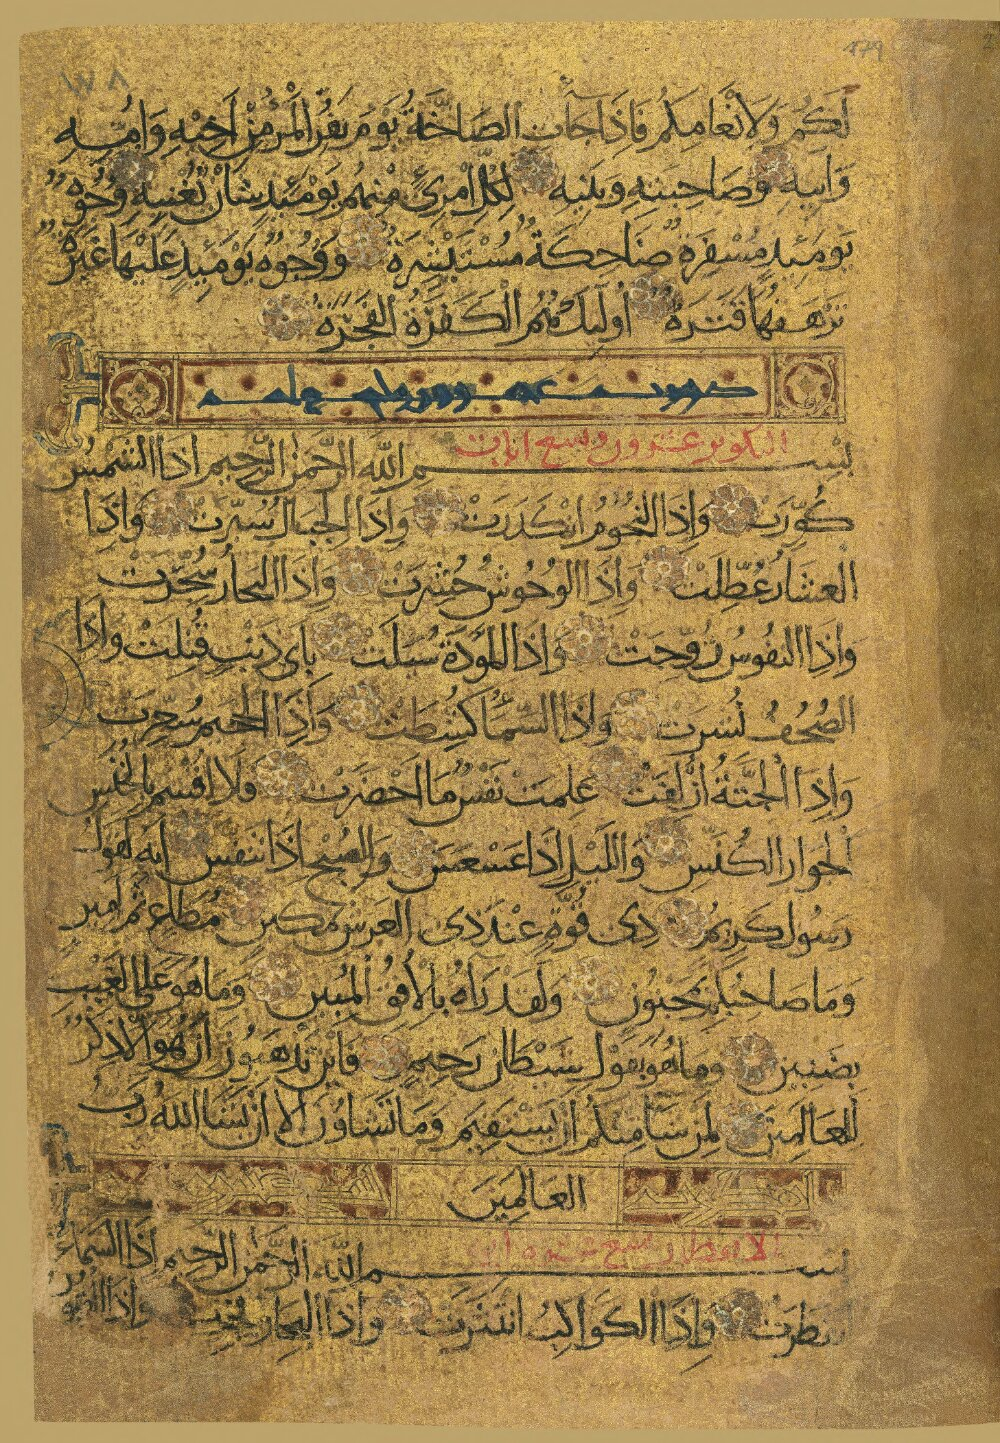 479
١٧٨
لَكُمْ وَلِأَنْعَامِكُمْ فَإِذَا جَاءَتِ الصَّاخَّةُ يَوْمَ يَفِرُّ الْمَرْءُ مِنْ أَخِيهِ وَأُمِّهِ
وَأَبِيهِ وَصَاحِبَتِهِ وَبَنِيهِ لِكُلِّ امْرِئٍ مِنْهُمْ يَوْمَئِذٍ شَأْنٌ يُغْنِيهِ وُجُوهٌ
يَوْمَئِذٍ مُسْفِرَةٌ ضَاحِكَةٌ مُسْتَبْشِرَةٌ وَوُجُوهٌ يَوْمَئِذٍ عَلَيْهَا غَبَرَةٌ
تَرْهَقُهَا قَتَرَةٌ أُولَئِكَ هُمُ الْكَفَرَةُ الْفَجَرَةُ
التكوير عشرون وتسع ايات
بِسْمِ اللَّهِ الرَّحْمَنِ الرَّحِيمِ إِذَا الشَّمْسُ
كُوِّرَتْ وَإِذَا النُّجُومُ انْكَدَرَتْ وَإِذَا الْجِبَالُ سُيِّرَتْ وَإِذَا
الْعِشَارُ عُطِّلَتْ وَإِذَا الْوُحُوشُ حُشِرَتْ وَإِذَا الْبِحَارُ سُجِّرَتْ
وَإِذَا النُّفُوسُ زُوِّجَتْ وَإِذَا الْمَوْءُدَةُ سُئِلَتْ بِأَيِّ ذَنْبٍ قُتِلَتْ وَإِذَا
الصُّحُفُ نُشِرَتْ وَإِذَا السَّمَاءُ كُشِطَتْ وَإِذَا الْجَحِيمُ سُعِّرَتْ
وَإِذَا الْجَنَّةُ أُزْلِفَتْ عَلِمَتْ نَفْسٌ مَا أَحْضَرَتْ فَلَا أُقْسِمُ بِالْخُنَّسِ
الْجَوَارِ الْكُنَّسِ وَاللَّيْلِ إِذَا عَسْعَسَ وَالصُّبْحِ إِذَا تَنَفَّسَ إِنَّهُ لَقَوْلُ
رَسُولٍ كَرِيمٍ ذِي قُوَّةٍ عِنْدَ ذِي الْعَرْشِ مَكِينٍ مُطَاعٍ ثَمَّ أَمِينٍ
وَمَا صَاحِبُكُمْ بِمَجْنُونٍ وَلَقَدْ رَآهُ بِالْأُفُقِ الْمُبِينِ وَمَا هُوَ عَلَى الْغَيْبِ
بِضَنِينٍ وَمَا هُوَ بِقَوْلِ شَيْطَانٍ رَجِيمٍ فَأَيْنَ تَذْهَبُونَ إِنْ هُوَ إِلَّا ذِكْرٌ
لِلْعَالَمِينَ لِمَنْ شَاءَ مِنْكُمْ أَنْ يَسْتَقِيمَ وَمَا تَشَاءُونَ إِلَّا أَنْ يَشَاءَ اللَّهُ رَبُّ
الْعَالَمِينَ
الانفطار تسع عشرة اية
بِسْمِ اللَّهِ الرَّحْمَنِ الرَّحِيمِ إِذَا السَّمَاءُ
انْفَطَرَتْ وَإِذَا الْكَوَاكِبُ انْتَثَرَتْ وَإِذَا الْبِحَارُ فُجِّرَتْ وَإِذَا الْقُبُورُ